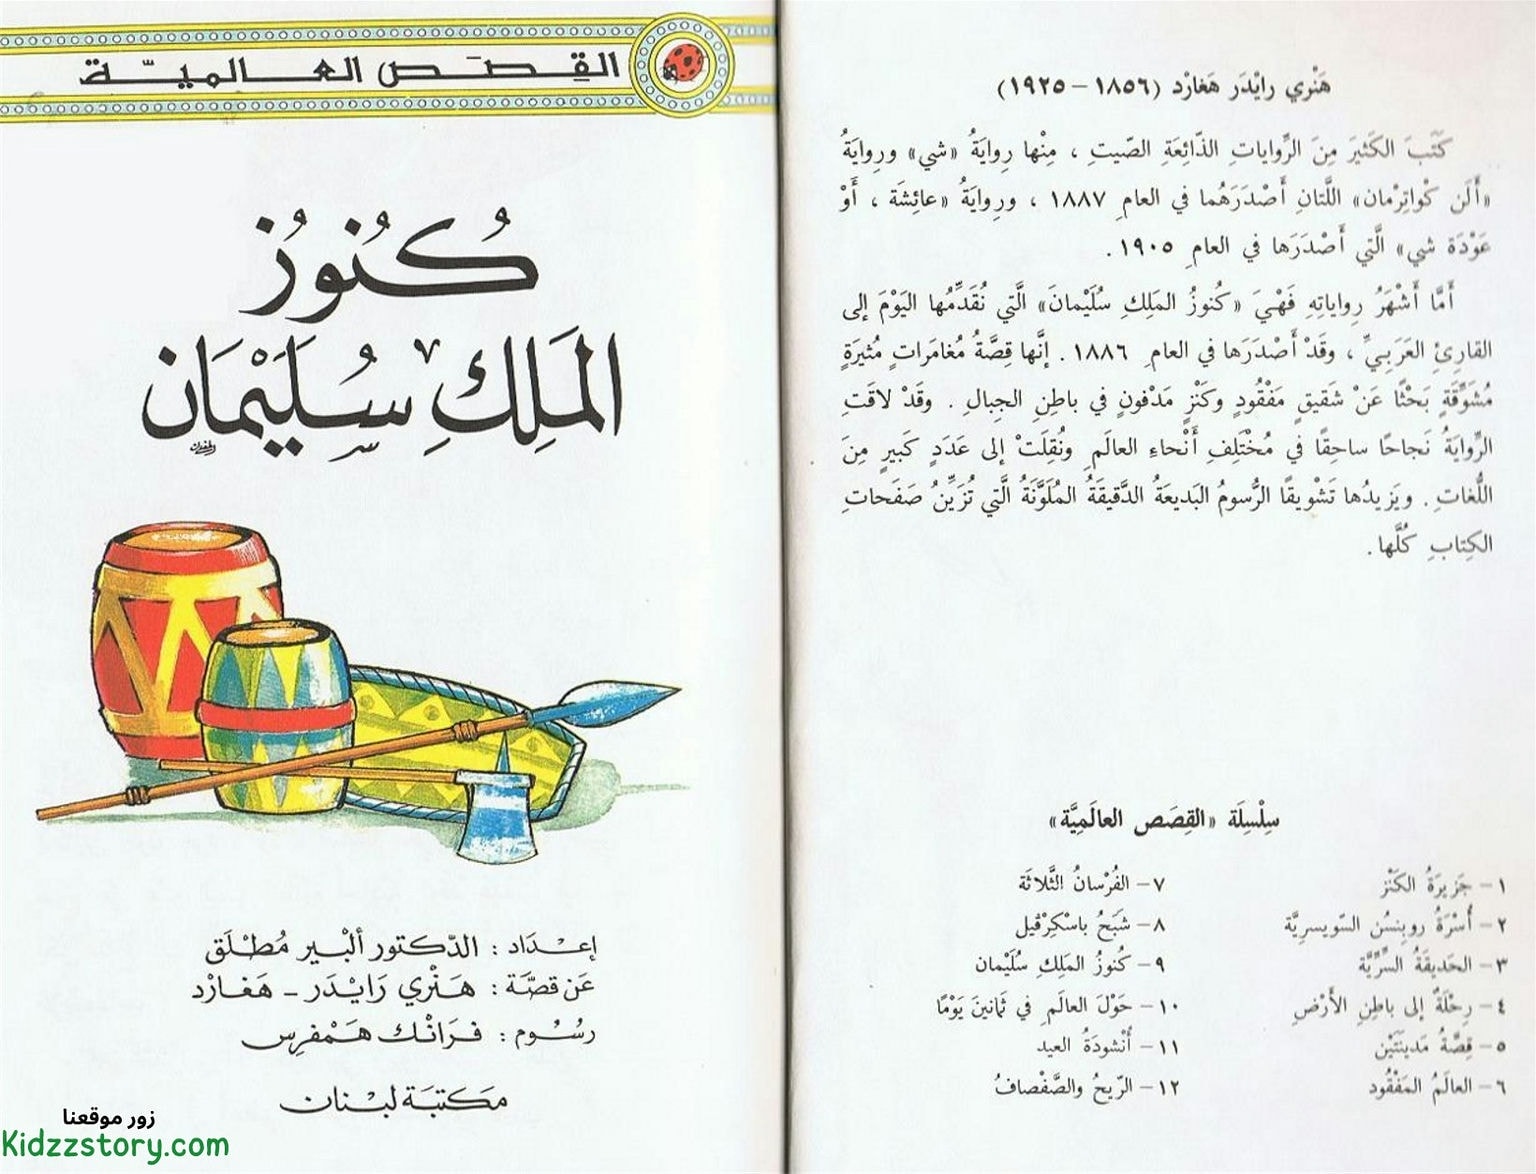 هَنْري رايْدَر هَغارْد (١٨٥٦ – ١٩٢٥)
كَتَبَ الكَثيرَ مِنَ الرِّواياتِ الذّائِعَةِ الصّيتِ ، مِنْها رِوايَةُ «شي» ورِوايَةُ
«أَلَن كْواتِرْمان» اللَّتانِ أَصْدَرَهُما في العامِ ١٨٨٧ ، ورِوايَةُ «عائِشَة ، أَوْ
عَوْدَة شي» الَّتي أَصْدَرَها في العامِ ١٩٠٥ .
أَمَّا أَشْهَرُ رِواياتِهِ فَهْيَ «كُنوزُ المَلِكِ سُلَيْمانَ» الَّتي نُقَدِّمُها اليَوْمَ إلى
القارِئِ العَرَبِيِّ ، وقَدْ أَصْدَرَها في العامِ ١٨٨٦ . إنَّها قِصَّةُ مُغامَراتٍ مُثيرَةٍ
مُشَوِّقَةٍ بَحْثًا عَنْ شَقيقٍ مَفْقُودٍ وكَنْزٍ مَدْفونٍ في باطِنِ الجِبالِ . وقَدْ لاقَتِ
الرِّوايَةُ نَجاحًا ساحِقًا في مُخْتَلِفِ أَنْحاءِ العالَمِ ونُقِلَتْ إلى عَدَدٍ كَبيرٍ مِنَ
اللُّغاتِ . ويَزيدُها تَشْويقًا الرُّسومُ البَديعَةُ الدَّقيقَةُ المُلَوَّنَةُ الَّتي تُزَيِّنُ صَفَحاتِ
الكِتابِ كُلَّها .
سِلْسِلَة «القِصَص العالَمِيَّة»
١ – جَزيرَةُ الكَنْز
٢ – أُسْرَةُ روبِنسُن السّويسرِيَّة
٣ – الحَديقَةُ السِّرِّيَّة
٤ – رِحْلَةٌ إلى باطِنِ الأَرْضِ
٥ – قِصَّةُ مَدينَتَيْن
٦ – العالَمُ المَفْقُود
٧ – الفُرْسانُ الثَّلاثَة
٨ – شَبَحُ باسْكِرْڤيل
٩ – كُنوزُ المَلِكِ سُلَيْمان
١٠ – حَوْلَ العالَمِ في ثَمانينَ يَوْمًا
١١ – أُنْشودَةُ العيد
١٢ – الرّيحُ والصَّفْصافُ
القِصَص العالميّة
كُنُوزُ
المَلِكِ سُلَيْمَان
إعْدَاد : الدّكتور ألبير مُطْلَق
عَن قصّة : هَنْري رَايْدَر – هَغارْد
رسُوم : فرَانْك هَمْفرِس
مَكتبَة لبْنان
زور موقعنا
Kidzzstory.com